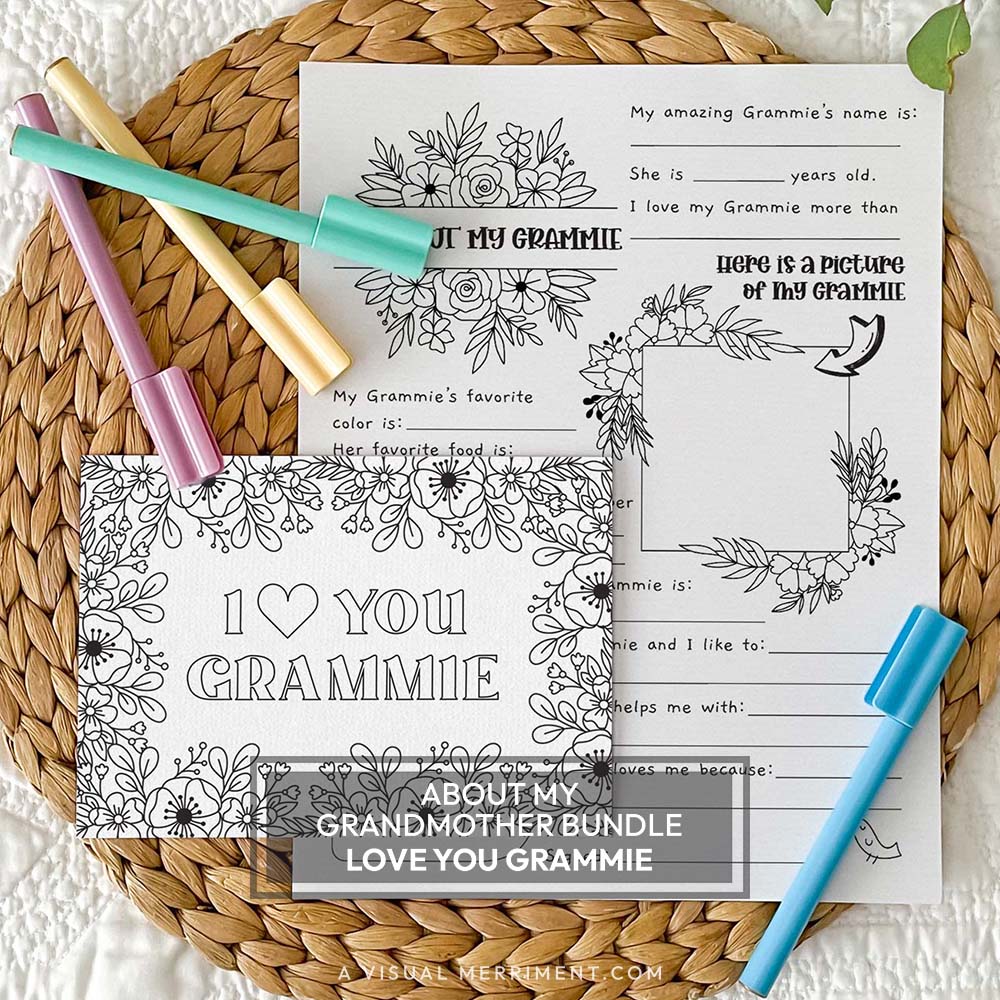 My amazing Grammie's name is:
She is years old.
I love my Grammie more than
MY GRAMMIE
Here is a picture
of my Grammie
My Grammie's favorite
color is:
Her favorite food is:
is:
and I like to:
helps me with:
loves me because:
I YOU
GRAMMIE
ABOUT MY
GRANDMOTHER BUNDLE
LOVE YOU GRAMMIE
A VISUAL MERRIMENT.COM